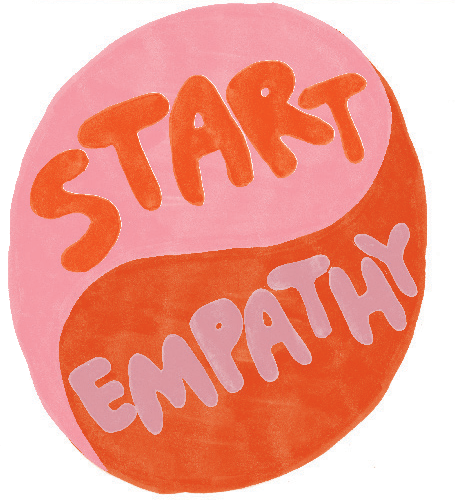 START
EMPATHY